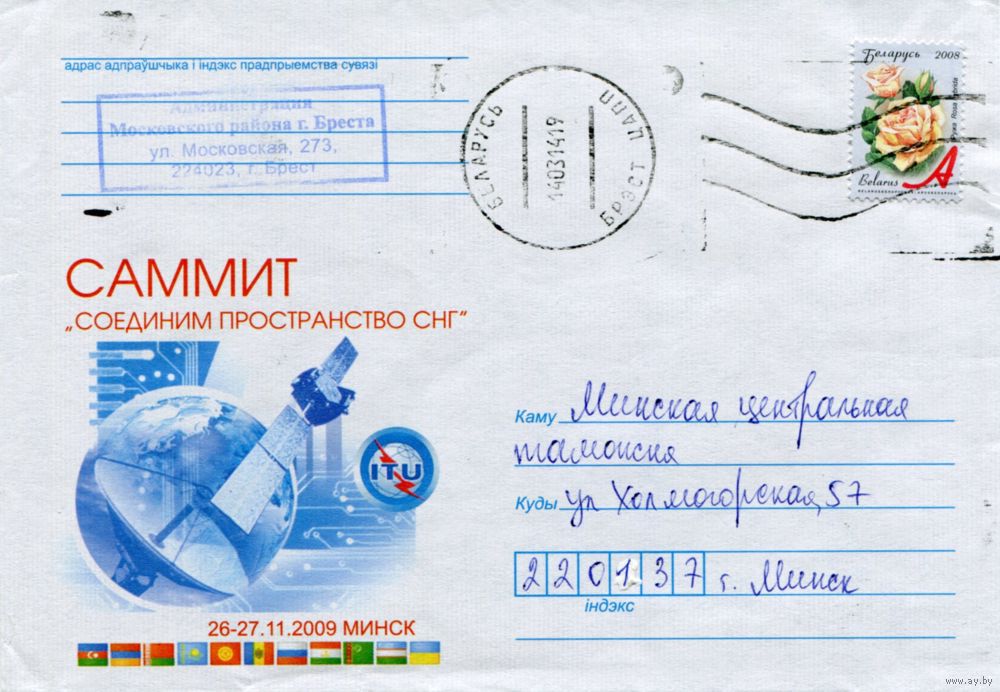 адрас адпраўшчыка і індэкс прадпрыемства сувязі
Администрация
Московского района г. Бреста
ул. Московская, 273,
224023, г. Брест
БЕЛАРУСЬ
14031419
БРЭСТ ЦАПП
Беларусь 2008
Rosa hybrida
Belarus
A
САММИТ
„СОЕДИНИМ ПРОСТРАНСТВО СНГ"
ITU
26-27.11.2009 МИНСК
Каму Минская центральная
таможня
Куды ул Холмогорская, 57
220137 г. Минск
індэкс
www.ay.by